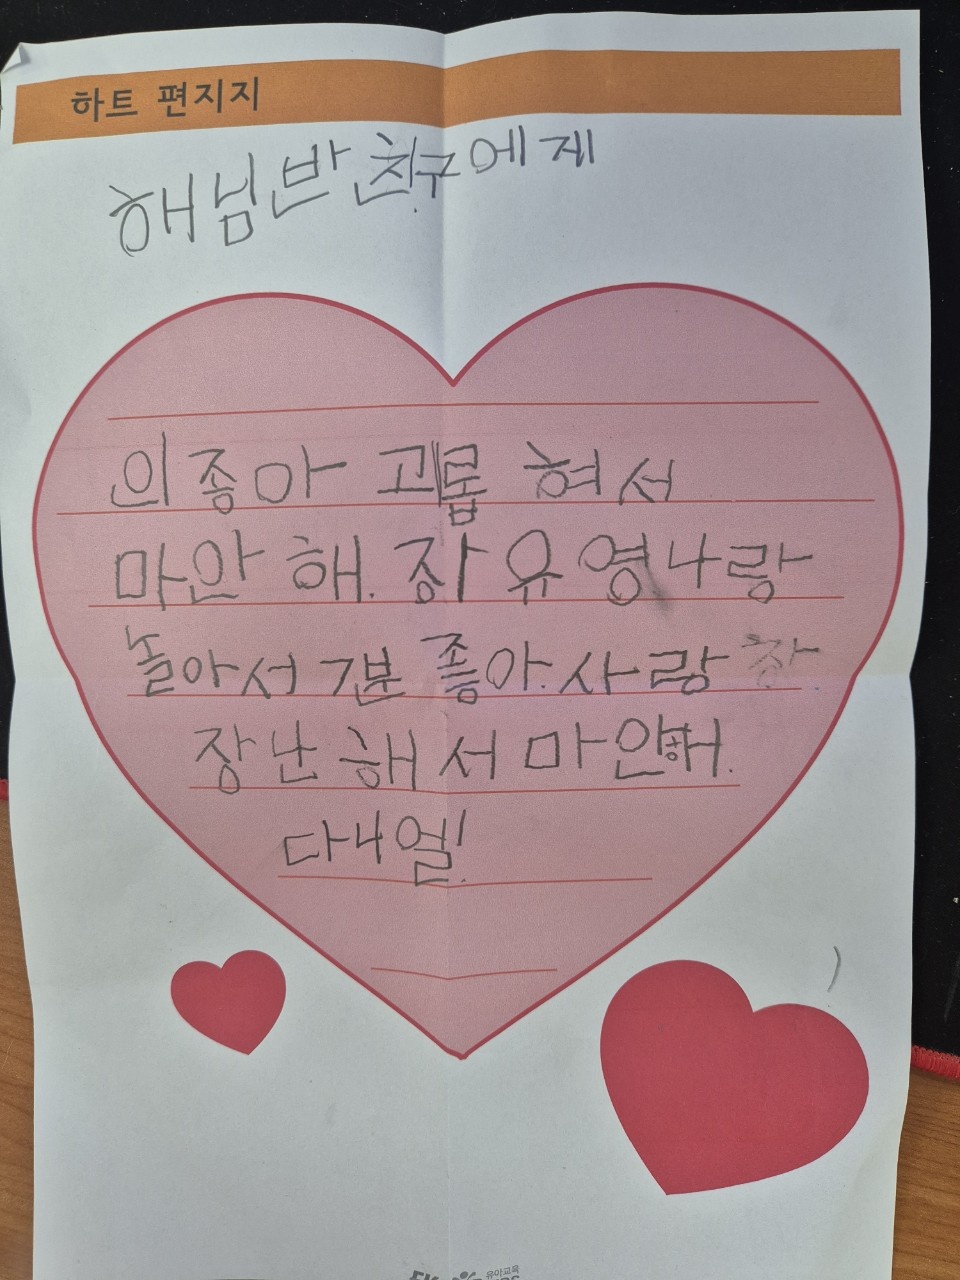 하트 편지지
해님반 친구에게
의종아 괴롭혀서
마안해. 장유영 나랑
놀아서 기분 좋아. 사랑
장난해서 마안해.
다니엘!
유아교육